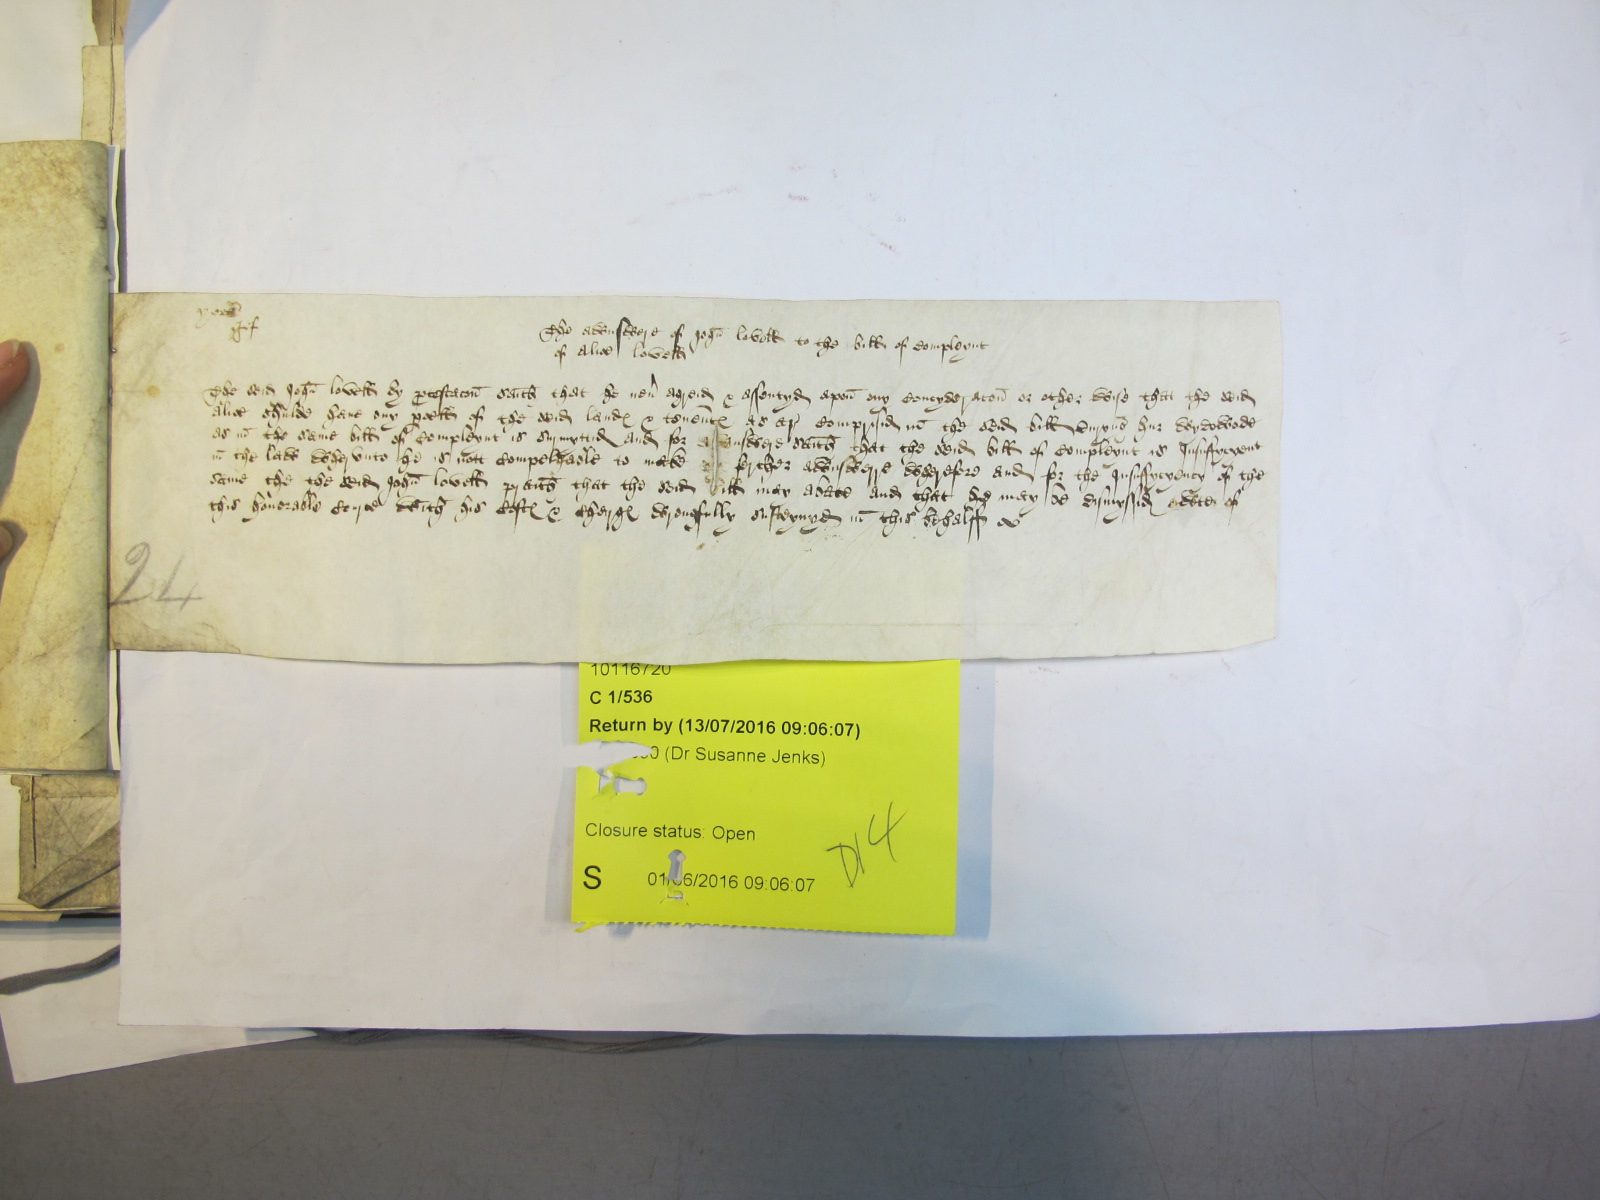 The awnswere of John lovell to the bill of compleynt
of Alice lovell
The seid John lovell by protestacon saith that he neu agreid & assentyd apon ony concyderacon or other wise that the seid
Alice shulde have ony parte of the seid landes & tenementes as ar comprisid in the seid bill duryng hur wydowode
as in the same bill of compleynt is surmyttid and for awnswere saith that the seid bill of compleynt is Insufycyent
in the law wherunto he is nott compelhable to make ferther awnswerre wherefore and for the Insufycyency of the
same the the seid John lovell prayth that the seid bill may abate and that he may be dismyssid owte of
this honerable Corte with his Costes & charges wrongfully susteynyd in this behalff &c
24
10116720
C 1/536
Return by (13/07/2016 09:06:07)
(Dr Susanne Jenks)
Closure status: Open
D14
S 01/06/2016 09:06:07